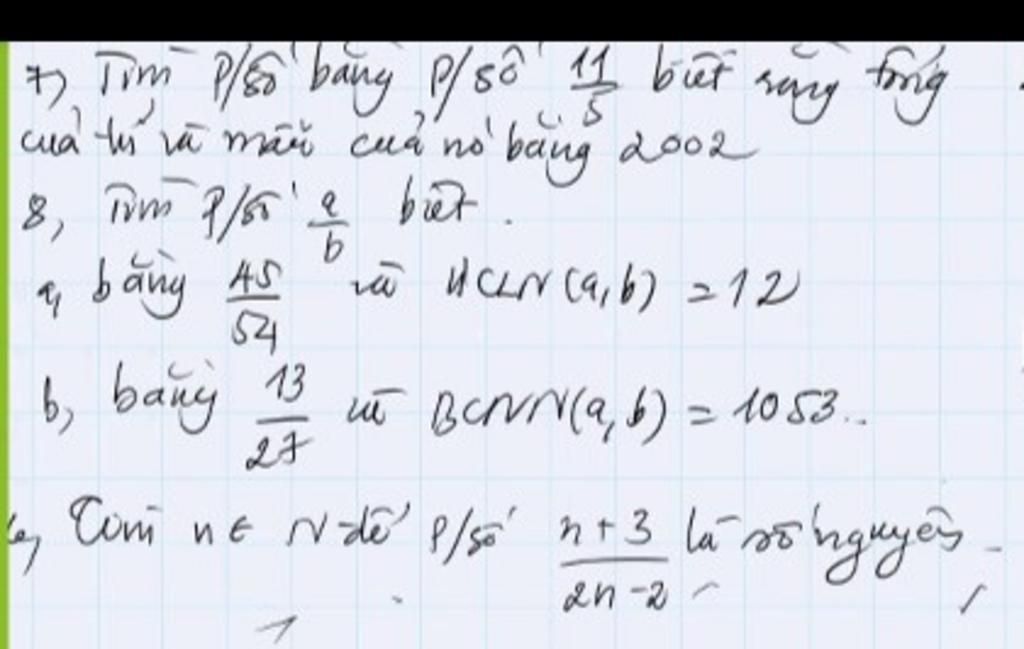 7, Tìm P/số bằng P/số 11/5 biết rằng tổng
của tử và mẫu của nó bằng 2002
8, Tìm P/số a/b biết.
a, bằng 45/54 và ƯCLN(a,b) = 12
b, bằng 13/27 và BCNN(a,b) = 1053..
Tìm n ∈ N để P/số n+3/2n-2 là số nguyên